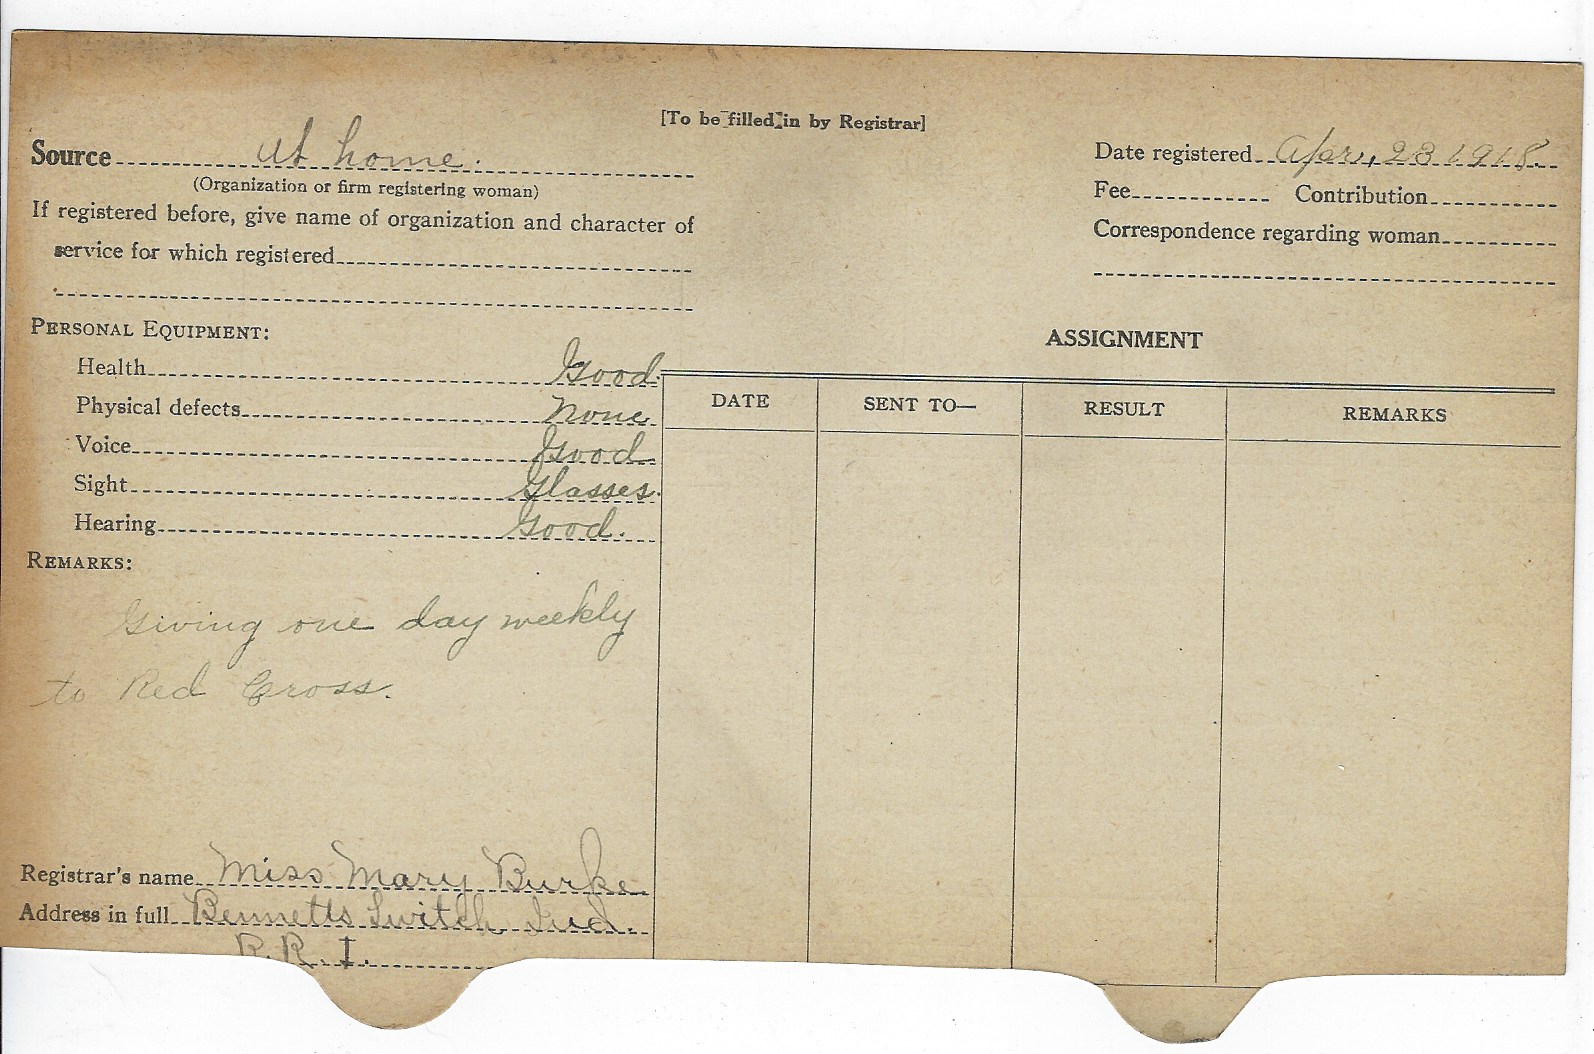 [To be filled in by Registrar]
Source At home.
(Organization or firm registering woman)
If registered before, give name of organization and character of
service for which registered
Date registered Apr. 23 1918.
Fee Contribution
Correspondence regarding woman
PERSONAL EQUIPMENT:
Health Good.
Physical defects None
Voice Good
Sight Glasses.
Hearing Good.
REMARKS:
Giving one day weekly
to Red Cross.
Registrar's name Miss Mary Burke
Address in full Bennetts Switch Ind.
R.R. 1.
ASSIGNMENT
DATE SENT TO— RESULT REMARKS